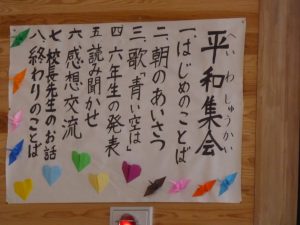 平和集会
へいわしゅうかい
一はじめのことば
二朝のあいさつ
三歌「青い空は」
四六年生の発表
五読み聞かせ
六感想交流
七校長先生のお話
八終わりのことば